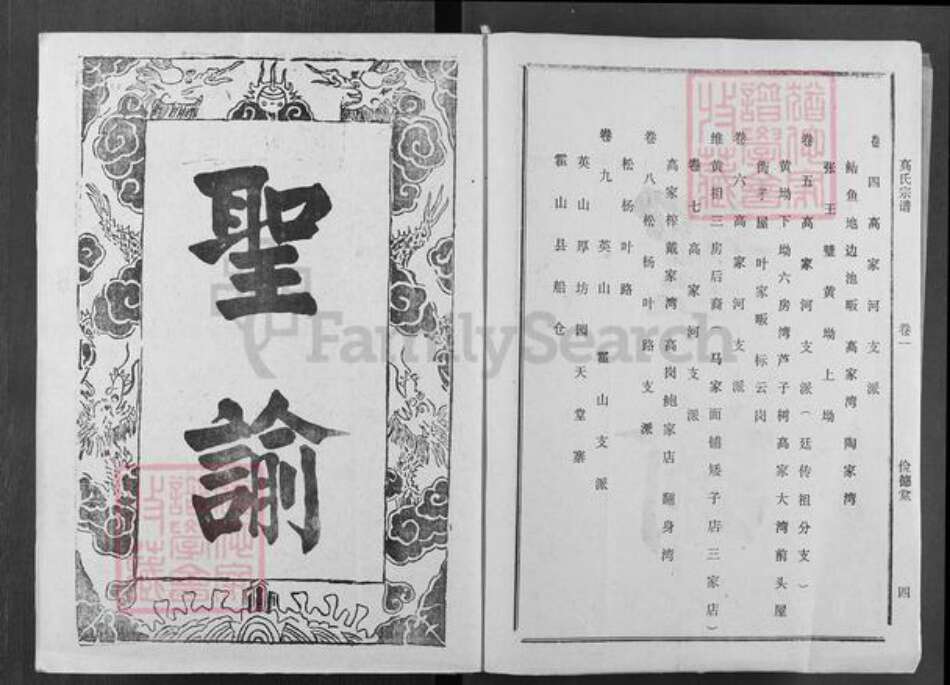 高氏宗谱
卷一
俭德堂
四
卷四高家河支派
鲇鱼地边池畈高家湾陶家湾
张王璧黄坳上坳
卷五高家河支派（廷传祖分支）
黄坳下坳六房湾芦子树高家大湾前头屋
屋叶家畈标云岗
卷六高家河支派
维黄相三房后裔（马家面铺矮子店三家店）
卷七高家河支派
高家榨戴家湾高岗鲍家店翻身湾
卷八松杨叶路支派
松杨叶路
卷九英山霍山支派
英山厚坊园天堂寨
霍山县船仓
聖諭
FamilySearch